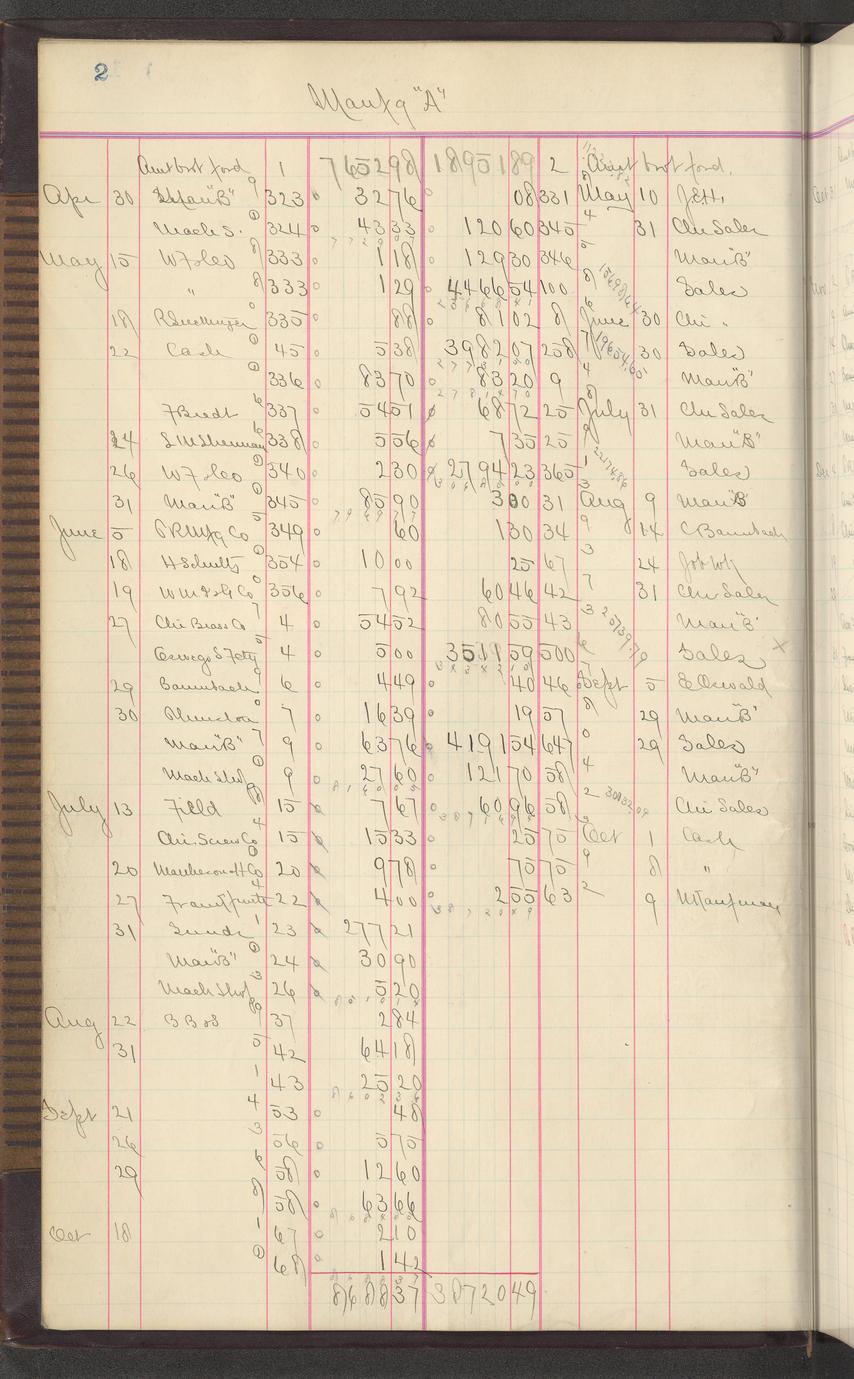 2
Manfg "A"
Amt brot ford 1 765298 1895189 2 Amt brot ford.
Apr 30 Man "B" 323 3276 08 331 May 10 J.E.H.
Mach S. 324 4333 12060 345 31 Chi Sales
May 15 W F & Co 333 118 12930 346 Man "B"
" 333 129 446654 100 Sales
18 335 88 8102 8 June 30 Chi "
22 Cash 45 538 398207 258 30 Sales
336 8370 8320 9 Man "B"
F Bredt 337 5451 6872 25 July 31 Chi Sales
24 S W Sherman 338 556 735 25 Man "B"
26 W F & Co 340 230 279423 365 Sales
31 Man "B" 345 8590 300 31 Aug 9 Man "B"
June 5 P R Mfg Co 349 60 130 34 14 C Baumbach
18 H Schultz 354 1000 25 67 24 Job Wk
19 356 792 6046 42 31 Chi Sales
27 Chi Brass Co 4 5452 8055 43 Man "B"
Oswego S Fcty 4 500 351159 500 Sales
29 Baumbach 6 449 40 46 Sept 5 E Oswald
30 7 1639 19 57 29 Man "B"
Man "B" 9 6376 419154 647 29 Sales
Mach Shop 9 2760 12170 58 Man "B"
July 13 Field 15 767 6096 58 Chi Sales
Chi. Screw Co 15 1533 25 75 Oct 1 Cash
20 20 978 75 75 8 "
27 22 400 255 63 9 M Kaufman
31 Sunds 23 27721
Man "B" 24 3090
Mach Shop 26 520
Aug 22 B Bos 37 284
31 42 6418
43 2520
Sept 21 53 48
26 56 575
29 58 1260
58 6366
Oct 18 67 210
68 142
868837 3872049